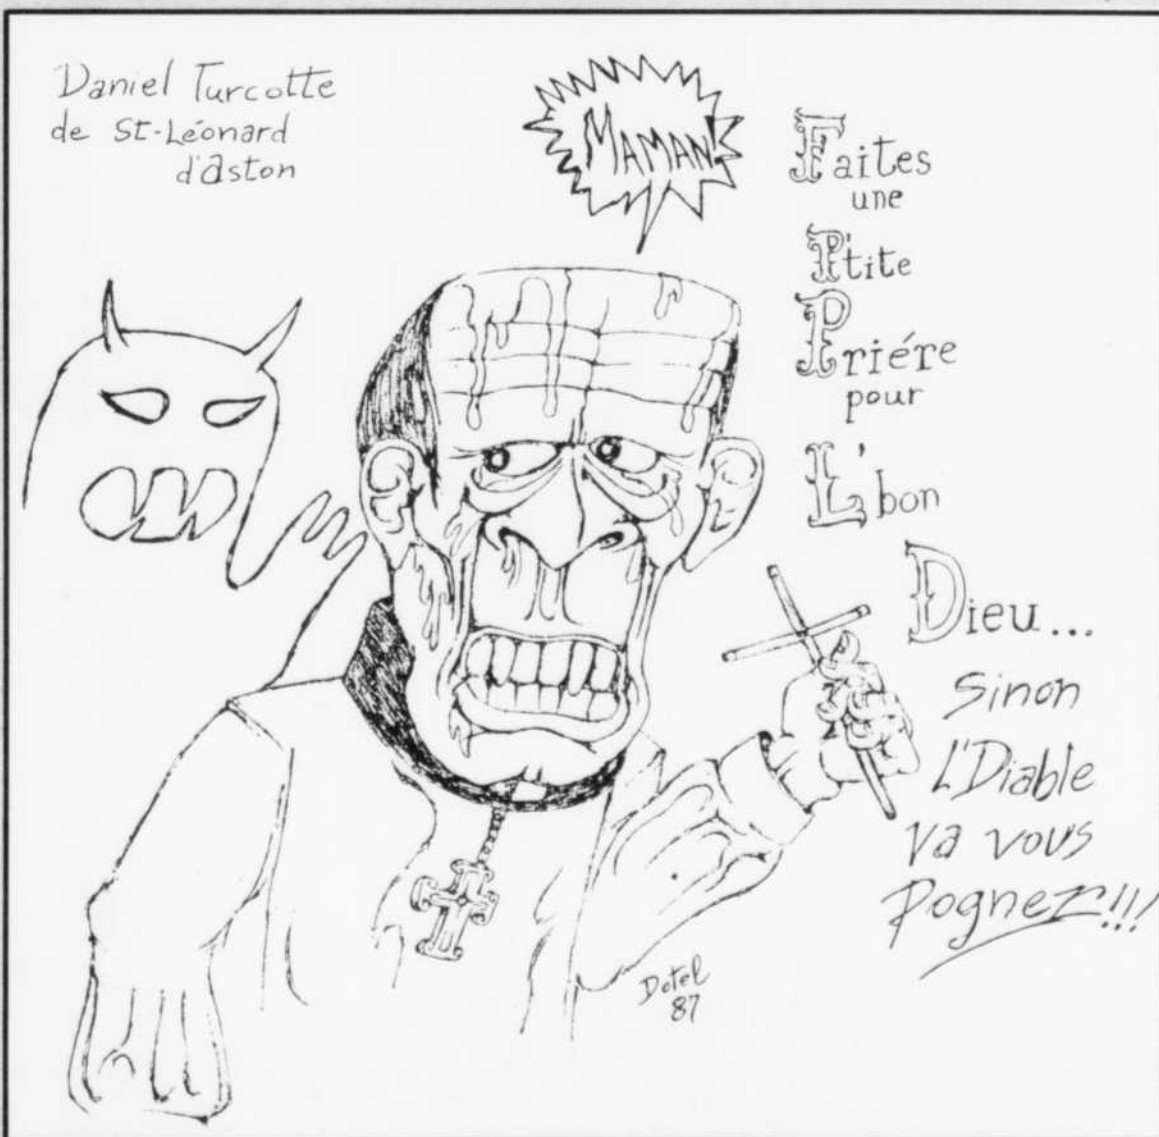 Daniel Turcotte
de St-Léonard
d'Aston
MAMAN!
Faites
une
P'tite
Priére
pour
L'bon
Dieu...
Sinon
L'Diable
va vous
Pognez!!!
Dotel
87